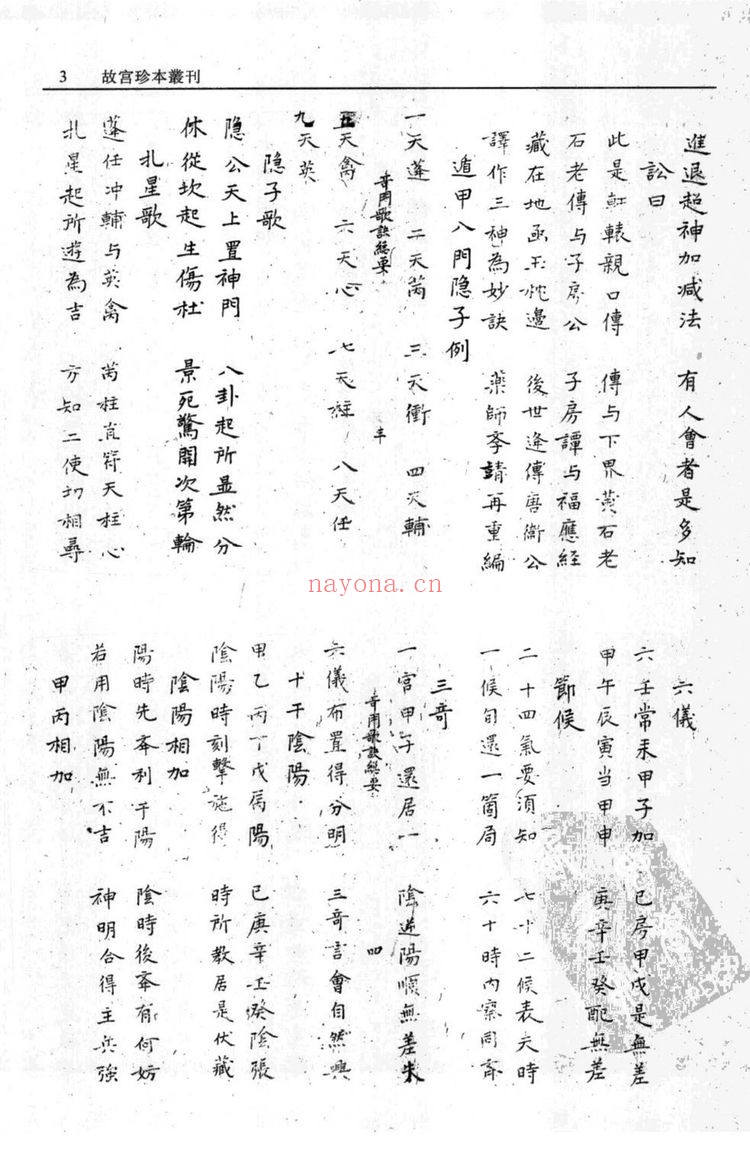 3 故宮珍本叢刊
進退超神加減法 有人會者是多知
訟曰
此是軒轅親口傳 傳与下界黄石老
石老傳与子房公 子房譚与福應経
藏在地函玉枕邊 後世逢傳唐衛公
譯作三神為妙訣 藥師李靖再重編
遁甲八門隐子例
一天蓬 二天芮 三天衝 四天輔
奇門歌訣總要
五天禽 六天心 七天柱 八天任
九天英
隐子歌
隐公天上置神門 八卦起所显然分
休從坎起生傷杜 景死驚開次第輪
九星歌
蓬任冲輔与英禽 芮柱直符天柱心
九星起所遊為吉 方知二使切相尋
六儀
六壬常耒甲子加 己房甲戊是無差
甲午辰寅当甲申 庚辛壬癸配無差
節候
二十四氣要須知 七十二候表天時
一候旬還一箇局 六十時内察同斉
三奇
一宮甲子還居一 陰逆陽順無差失
奇門歌訣總要
四
六儀布置得分明 三奇言會自然興
十干陰陽
甲乙丙丁戊属陽 己庚辛壬癸陰張
陰陽時刻擊施得 時所教居是伏藏
陰陽相加
陽時先奉利于陽 陰時後奉有何妨
若用陰陽無不吉 神明合得主兵強
甲丙相加
nayona.cn